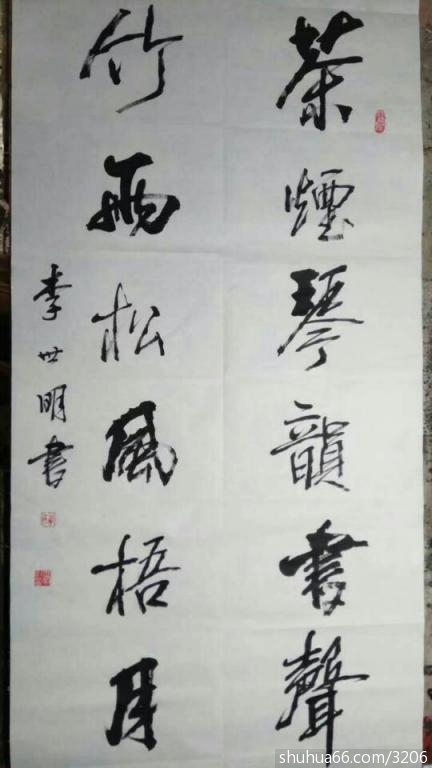 茶煙琴韻書聲
竹雨松風梧月
李世明書
shuhua66.com/3206